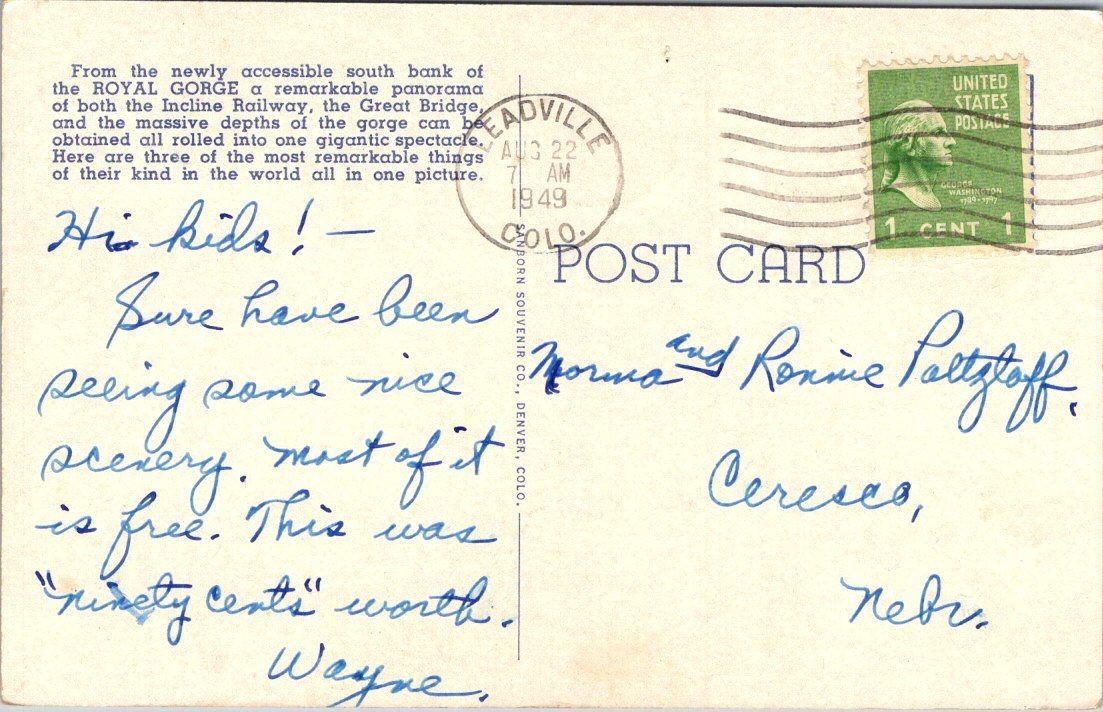 From the newly accessible south bank of
the ROYAL GORGE a remarkable panorama
of both the Incline Railway, the Great Bridge,
and the massive depths of the gorge can be
obtained all rolled into one gigantic spectacle.
Here are three of the most remarkable things
of their kind in the world all in one picture.
Hi kids! —
Sure have been
seeing some nice
scenery. Most of it
is free. This was
"ninety cents" worth.
Wayne.
SANBORN SOUVENIR CO., DENVER, COLO.
LEADVILLE
AUG 22
7 AM
1949
COLO.
UNITED
STATES
POSTAGE
GEORGE
WASHINGTON
1789-1797
1 CENT 1
POST CARD
Norma and Ronnie
Ceresco,
Nebr.